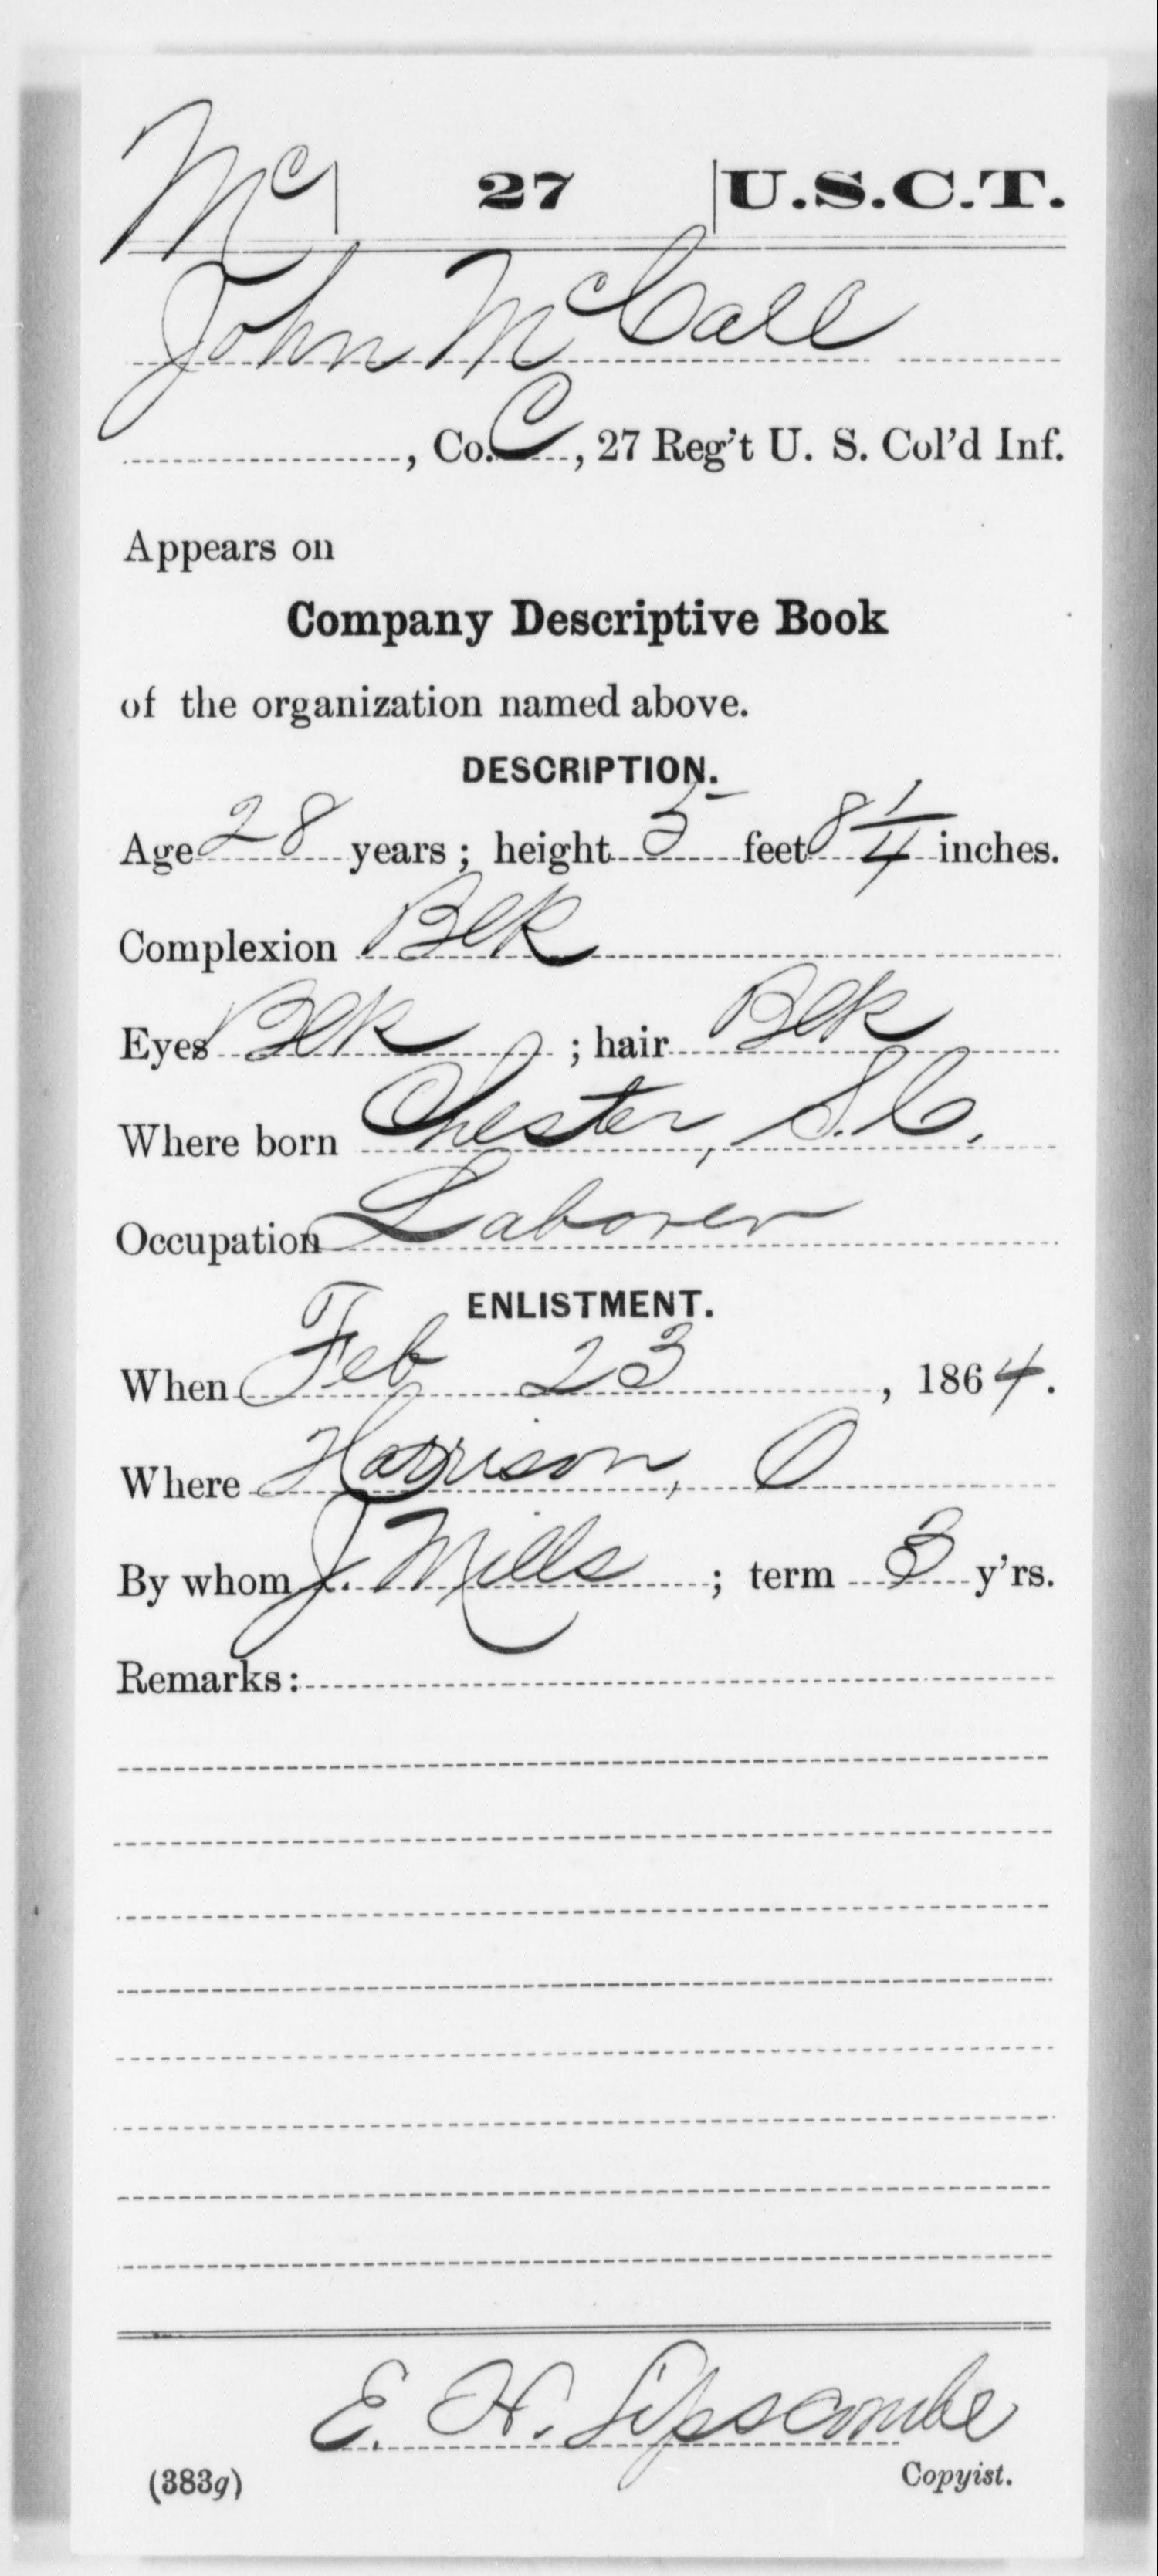 Mc | 27 | U.S.C.T.
John McCall
, Co. C, 27 Reg't U. S. Col'd Inf.
Appears on
Company Descriptive Book
of the organization named above.
DESCRIPTION.
Age 28 years; height 5 feet 8 1/4 inches.
Complexion Blk
Eyes Blk ; hair Blk
Where born Chester, S.C.
Occupation Laborer
ENLISTMENT.
When Feb 23, 1864.
Where Harrison, O
By whom J. Mills ; term 3 y'rs.
Remarks:
E. H. Lipscombe
(383g) Copyist.